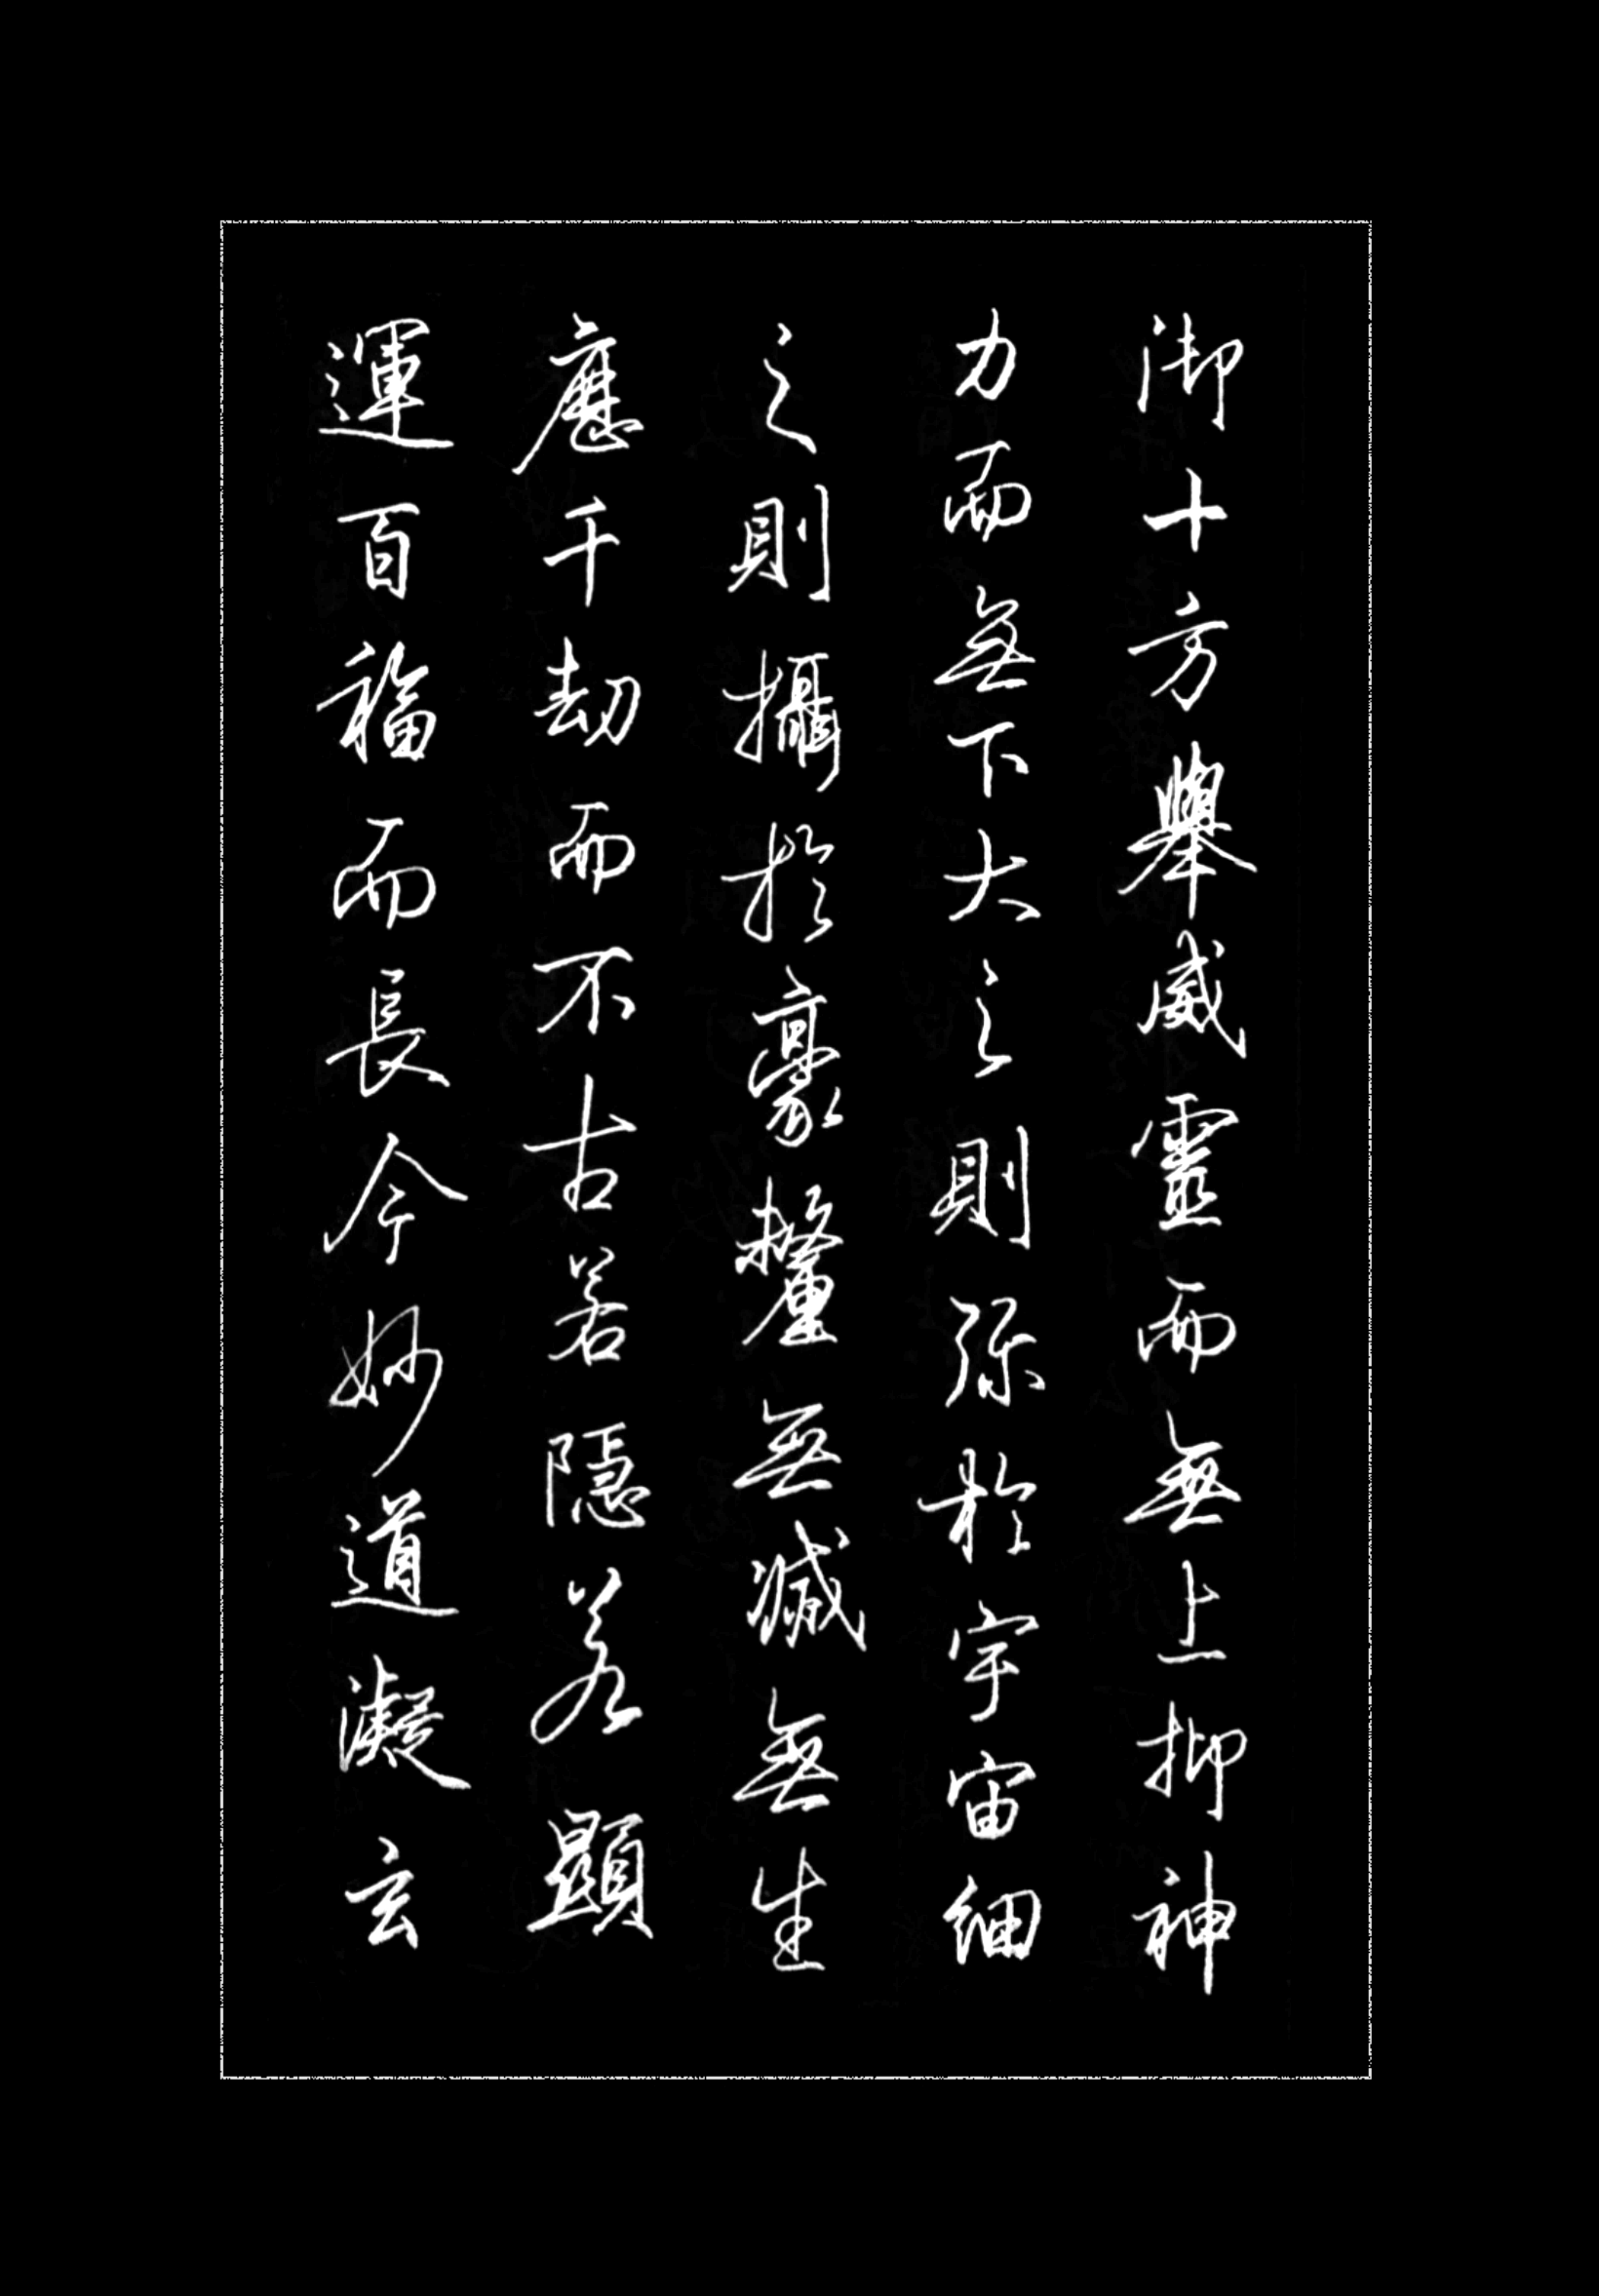 御十方舉威靈而無上抑神
力而無下大之則彌於宇宙細
之則攝於豪釐無滅無生
歷千劫而不古若隱若顯
運百福而長今妙道凝玄